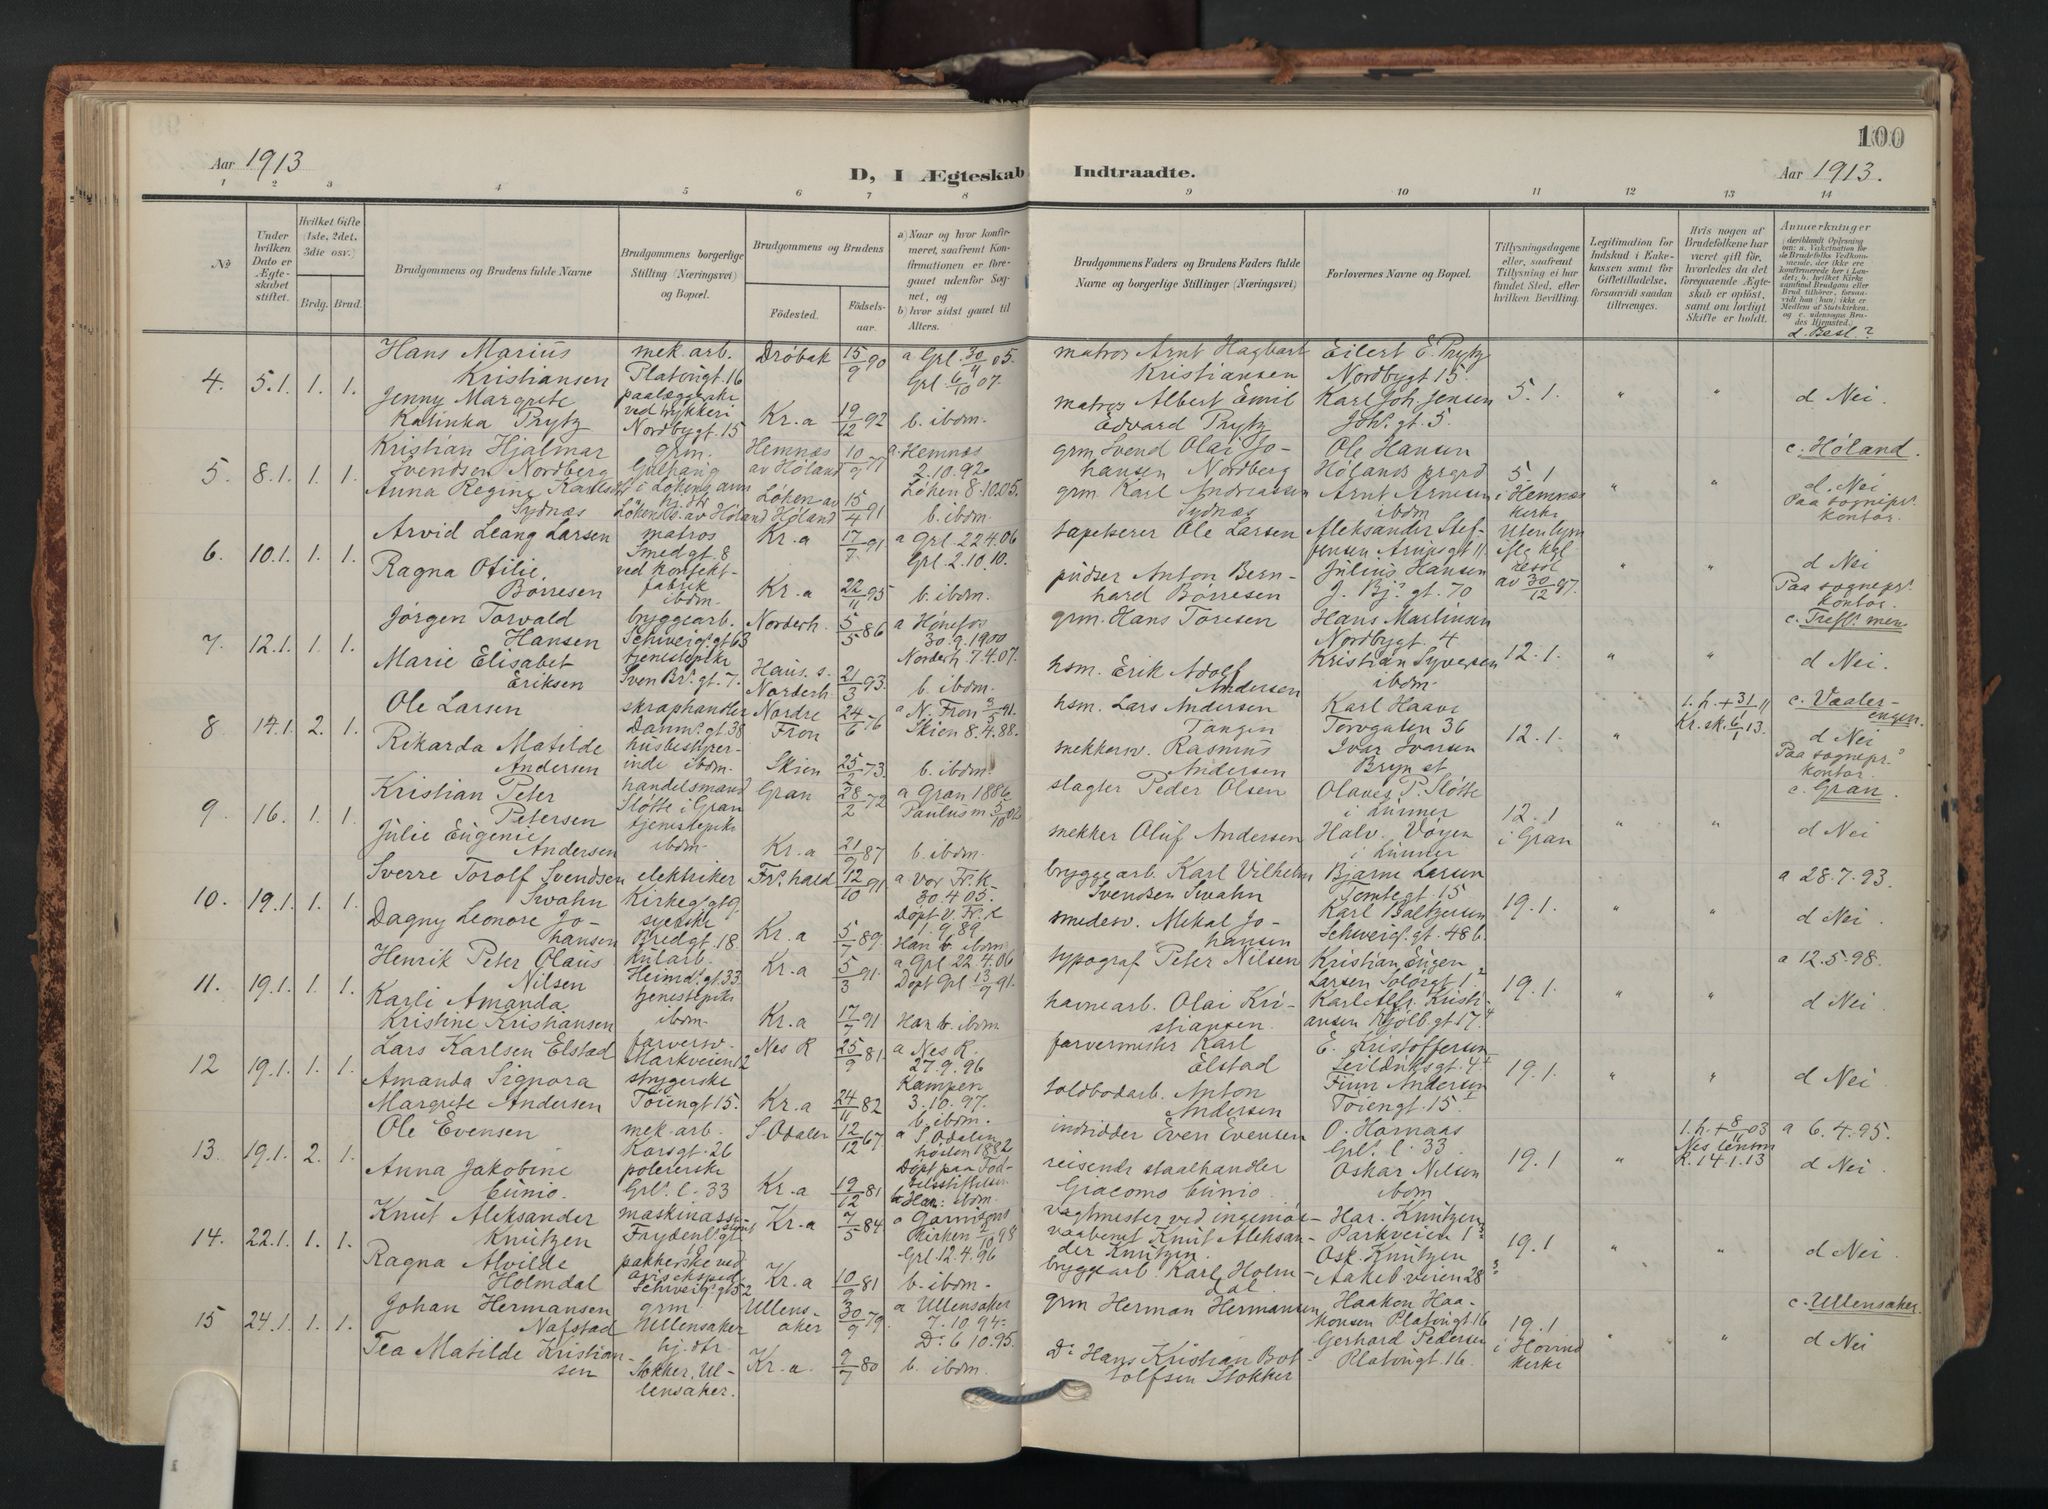 Aar 1913
D, I Ægteskab Indtraadte.
100
Aar 1913.
1 2 3 4 5 6 7 8 9 10 11 12 13 14
№
Under hvilken Dato er Ægteskabet stiftet.
Hvilket Gifte (1ste, 2det, 3die osv.)
Brdg. Brud.
Brudgommens og Brudens fulde Navne
Brudgommens borgerlige Stilling (Næringsvei) og Bopæl.
Brudgommens og Brudens
Födested. Födselsaar.
a) Naar og hvor konfirmeret, saafremt Konfirmationen er foregaaet udenfor Sognet, og
b) hvor sidst gaaet til Alters.
Brudgommens Faders og Brudens Faders fulde Navne og borgerlige Stillinger (Næringsvei)
Forlovernes Navne og Bopæl.
Tillysningsdagene eller, saafremt Tillysning ei har fundet Sted, efter hvilken Bevilling.
Legitimation for Indskud i Enkekassen samt for Giftetilladelse, forsaavidt saadan tiltrænges.
Hvis nogen af Brudefolkene har været gift för, hvorledes da det foregaaende Ægteskab er oplöst, samt om lovligt Skifte er holdt.
Anmærkninger
d. Besl?
4. 5.1. 1. 1.
Hans Marius Kristiansen
mek. arb. Platousgt. 16
Drøbak 15/9 90
a Grl. 30/4 05.
Grl 6/10 07.
matros Arnt Hagbart Kristiansen
Eilert E. Prytz Nordbygt 15.
5.1. " " d Nei.
Jenny Margrete Katinka Prytz
paalæggerske ved trykkeri Nordbygt. 15
Kr.a 19/12 92
b. ibdm.
matros Albert Emil Edvard Prytz
Karl Joh. Jensen Joh. gt. 5.
5. 8.1. 1. 1.
Kristian Hjalmar Svendsen Nordberg
grm.
Hemnæs av Høland 10/9 77
a. Hemnæs 2.10.92
Løken 8.10.05.
grm Svend Olai Johansen Nordberg
Ole Hansen Hølands prgrd
5.1 i Hemnæs kirke
" "
c. Høland.
d. Nei
Paa sognepr. kontor.
Anna Regine Karlsdtr Sydnæs
Løken av Høland 15/4 91
b. ibdm.
grm Karl Andreassen Sydnæs
Arnt Arnesen ibdm
6. 10.1. 1. 1.
Arvid Leang Larsen
matros Smedgt. 8
Kr.a 17/7 91
a Grl. 22.4.06
Grl. 2.10.10.
tapetserer Ole Larsen
Aleksander Steffensen Arupsgt 11.
Uten lysn iflg kgl resol av 30/12 97.
" " d Nei
Paa sognepr. kontor.
Ragna Otilie Børresen
ved konfektfabrik ibdm.
Kr.a 22/11 95
b. ibdm.
pudser Anton Bernhard Børresen
Julius Hansen J. Bj. gt. 70
7. 12.1. 1. 1.
Jørgen Torvald Hansen
bryggearb. Schweig. gt 63
Norderh. 5/5 86
a Hønefos 30.9.1900
Norderh. 7.4.07.
grm. Hans Toresen
Hans Martinsen Nordbygt. 4
12.1. " "
d Nei.
Marie Elisabet Eriksen
tjenestepike Sven Br. gt. 7.
Haus. s. Norderh. 21/3 93
b. ibdm.
hsm. Erik Adolf Andersen
Kristian Syversen ibdm.
8 14.1. 2. 1.
Ole Larsen
skraphandler Danm. gt. 38
Nordre Fron 24/6 76
a N. Fron 3/5 91.
Skien 8.4.88.
hsm. Lars Andersen Tangen
Karl Haave Torvgaten 36
12.1. "
1. h. + 31/1 11
Kr. sk. 6/1 13.
c. Vaalerengen.
d Nei
Paa sognepr. kontor.
Rikarda Matilde Andersen
husbestyrerinde ibdm.
Skien 25/2 73.
b. ibdm.
snekkersv. Rasmus Andersen
Ivar Ivarsen Bryn st
9. 16. 1. 1.
Kristian Peter Petersen
handelsmand Støtte i Gran
Gran 28/2 72
a Gran 1886
Paulus m 5/10 02
slagter Peder Olsen
Olaves P. Støtte i Lunner
12.1 i Gran
" "
c. Gran.
d Nei
Julie Eugenie Andersen
tjenestepike ibdm.
Kr.a 21/9 87
b. ibdm.
snekker Oluf Andersen
Halv. Vøyen i Lunner
10. 19.1. 1. 1.
Sverre Torolf Svendsen Swahn
elektriker Kirkeg. gt 9.
Fr. hald 12/10 91
a Vor Fr. K. 30.4.05.
bryggearb. Karl Vilhelm Svendsen Swahn
Bjarne Larsen Tomtegt. 15
19.1. " "
a 28.7.93.
d Nei.
Dagny Leonore Johansen
syerske Bredgt. 18.
Kr.a 5/7 89.
Døpt V. Fr. k 1.9.89
Han b. ibdm.
smedesv. Mikal Johansen
Karl Baltzersen Schweig. gt. 48 b.
11. 19.1. 1. 1.
Henrik Peter Olaus Nilsen
kularb. Heimd. gt. 33
Kr.a 5/3 91.
a Grl 22.4.06
Døpt Grl 13/9 91.
typograf Peter Nilsen
Kristian Eugen Larsen Solørgt 1²
19.1. " "
a 12.5.98.
d Nei.
Karli Amanda Kristine Kristiansen
tjenestepike ibdm.
Kr.a 17/7 91
Han b. ibdm
havnearb. Olai Kristiansen.
Karl Alfr. Kristiansen Kjølb. gt 17.⁴
12 19.1. 1. 1.
Lars Karlsen Elstad
farversv. Markveien 12
Nes R 25/9 81
a Nes R. 27.9.96
farvermester Karl Elstad
E. Kristoffersen
19.1. " " d Nei.
Amanda Signora Margrete Andersen
strygerske Tøiengt 15.
Kr.a 24/11 82
Kampen 3.10.97.
b. ibdm.
toldbodarb. Anton Andersen
Finn Andersen Tøiengt. 15.
13. 19.1. 2. 1.
Ole Evensen
mek. arb. Korsgt. 26
S Odalen 12/12 67
a S. Odalen høsten 1882
indridder Even Evensen
O. Hornaas Grl. l. 33
19.1 "
1. h. + 8/11 03
R. 14.1.13
a 6.4.95.
d Nei.
Anna Jakobine Cunio.
polererske Grl. l. 33
Kr.a 19/12 81
Døpt paa Fødselsstiftelsen
b Han: ibdm.
reisende staalhandler Giacomo Cunio.
Oskar Nilsen ibdm
14. 22.1. 1. 1.
Knut Aleksander Knutzen
Frydenl. gt
Kr.a 7/5 84
a Garnisons Kirken 2/10 98
Grl 12.4.96
vagtmester ved ingeniørvaabenet Knut Aleksander Knutzen.
Har. Knutzen Parkveien 1³
19.1 " " d Nei.
Ragna Alvilde Holmdal
pakkerske ved Schweig. gt 52
Kr.a 10/9 81
b. ibdm.
bryggearb. Karl Holmdal
Osk. Knutzen Aakeb. veien 28³
15 24.1. 1. 1.
Johan Hermansen Nafstad
grm Ullensaker
Ullensaker 30/9 79.
a Ullensaker 7.10 94.
Do 6 10.95.
grm Herman Hermansen
Haakon Haakonsen Platousgt 16
19.1 i Hovind kirke
" "
c. Ullensaker.
d Nei
Tea Matilde Kristiansen
hj. dtr. Stokker, Ullensaker.
Kr.a. 9/7 80
b. ibdm.
Do Hans Kristian Botolfsen Stokker
Gerhard Pedersen Platousgt 16.